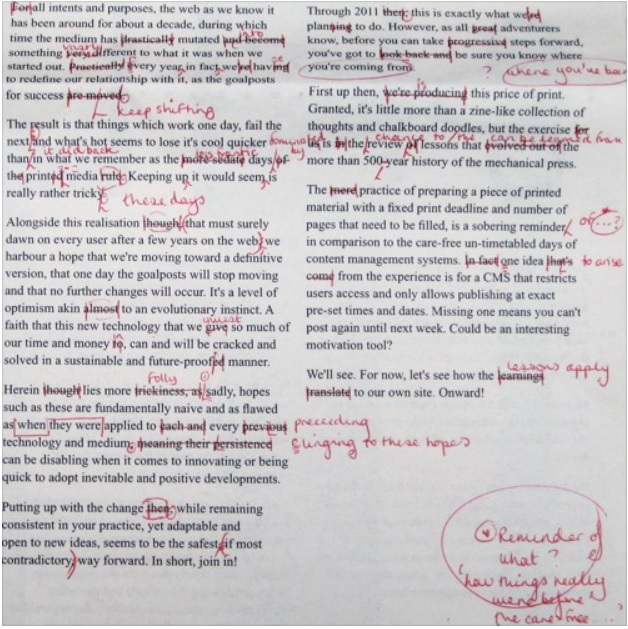 For all intents and purposes, the web as we know it
has been around for about a decade, during which
time the medium has drastically mutated and become
something very different to what it was when we
started out. Practically every year in fact, we're having
to redefine our relationship with it, as the goalposts
for success are moved.
keep shifting
The result is that things which work one day, fail the
next and what's hot seems to lose it's cool quicker
than in what we remember as the more sedate days of
the printed media rule. Keeping up it would seem is
really rather tricky
these days
Alongside this realisation though (that must surely
dawn on every user after a few years on the web) we
harbour a hope that we're moving toward a definitive
version, that one day the goalposts will stop moving
and that no further changes will occur. It's a level of
optimism akin almost to an evolutionary instinct. A
faith that this new technology that we give so much of
invest
our time and money to, can and will be cracked and
solved in a sustainable and future-proofed manner.
folly
Herein though lies more trickiness, as sadly, hopes
such as these are fundamentally naive and as flawed
as when they were applied to each and every previous preceeding
technology and medium, meaning their persistence clinging to these hopes
can be disabling when it comes to innovating or being
quick to adopt inevitable and positive developments.
Putting up with the change then, while remaining
consistent in your practice, yet adaptable and
open to new ideas, seems to be the safest, if most
contradictory, way forward. In short, join in!
Through 2011 then, this is exactly what we're
planning to do. However, as all great adventurers
know, before you can take progressive steps forward,
you've got to look back and be sure you know where
you're coming from. ? where you've been
First up then, we're producing this price of print.
Granted, it's little more than a zine-like collection of
thoughts and chalkboard doodles, but the exercise for
chance to can be learned from
us is in the review of lessons that evolved out of the
more than 500-year history of the mechanical press.
The mere practice of preparing a piece of printed
material with a fixed print deadline and number of
pages that need to be filled, is a sobering reminder of ...?
in comparison to the care-free un-timetabled days of
content management systems. In fact one idea that's to arise
come from the experience is for a CMS that restricts
users access and only allows publishing at exact
pre-set times and dates. Missing one means you can't
post again until next week. Could be an interesting
motivation tool?
lessons apply
We'll see. For now, let's see how the learnings
translate to our own site. Onward!
Reminder of
what?
'how things really
were before
the care free ....